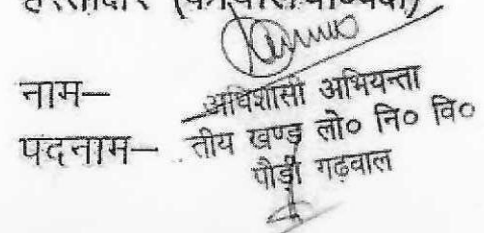 हस्ताक्षर
नाम—
अधिशासी अभियन्ता
पदनाम— तीय खण्ड लो० नि० वि०
पौड़ी गढ़वाल